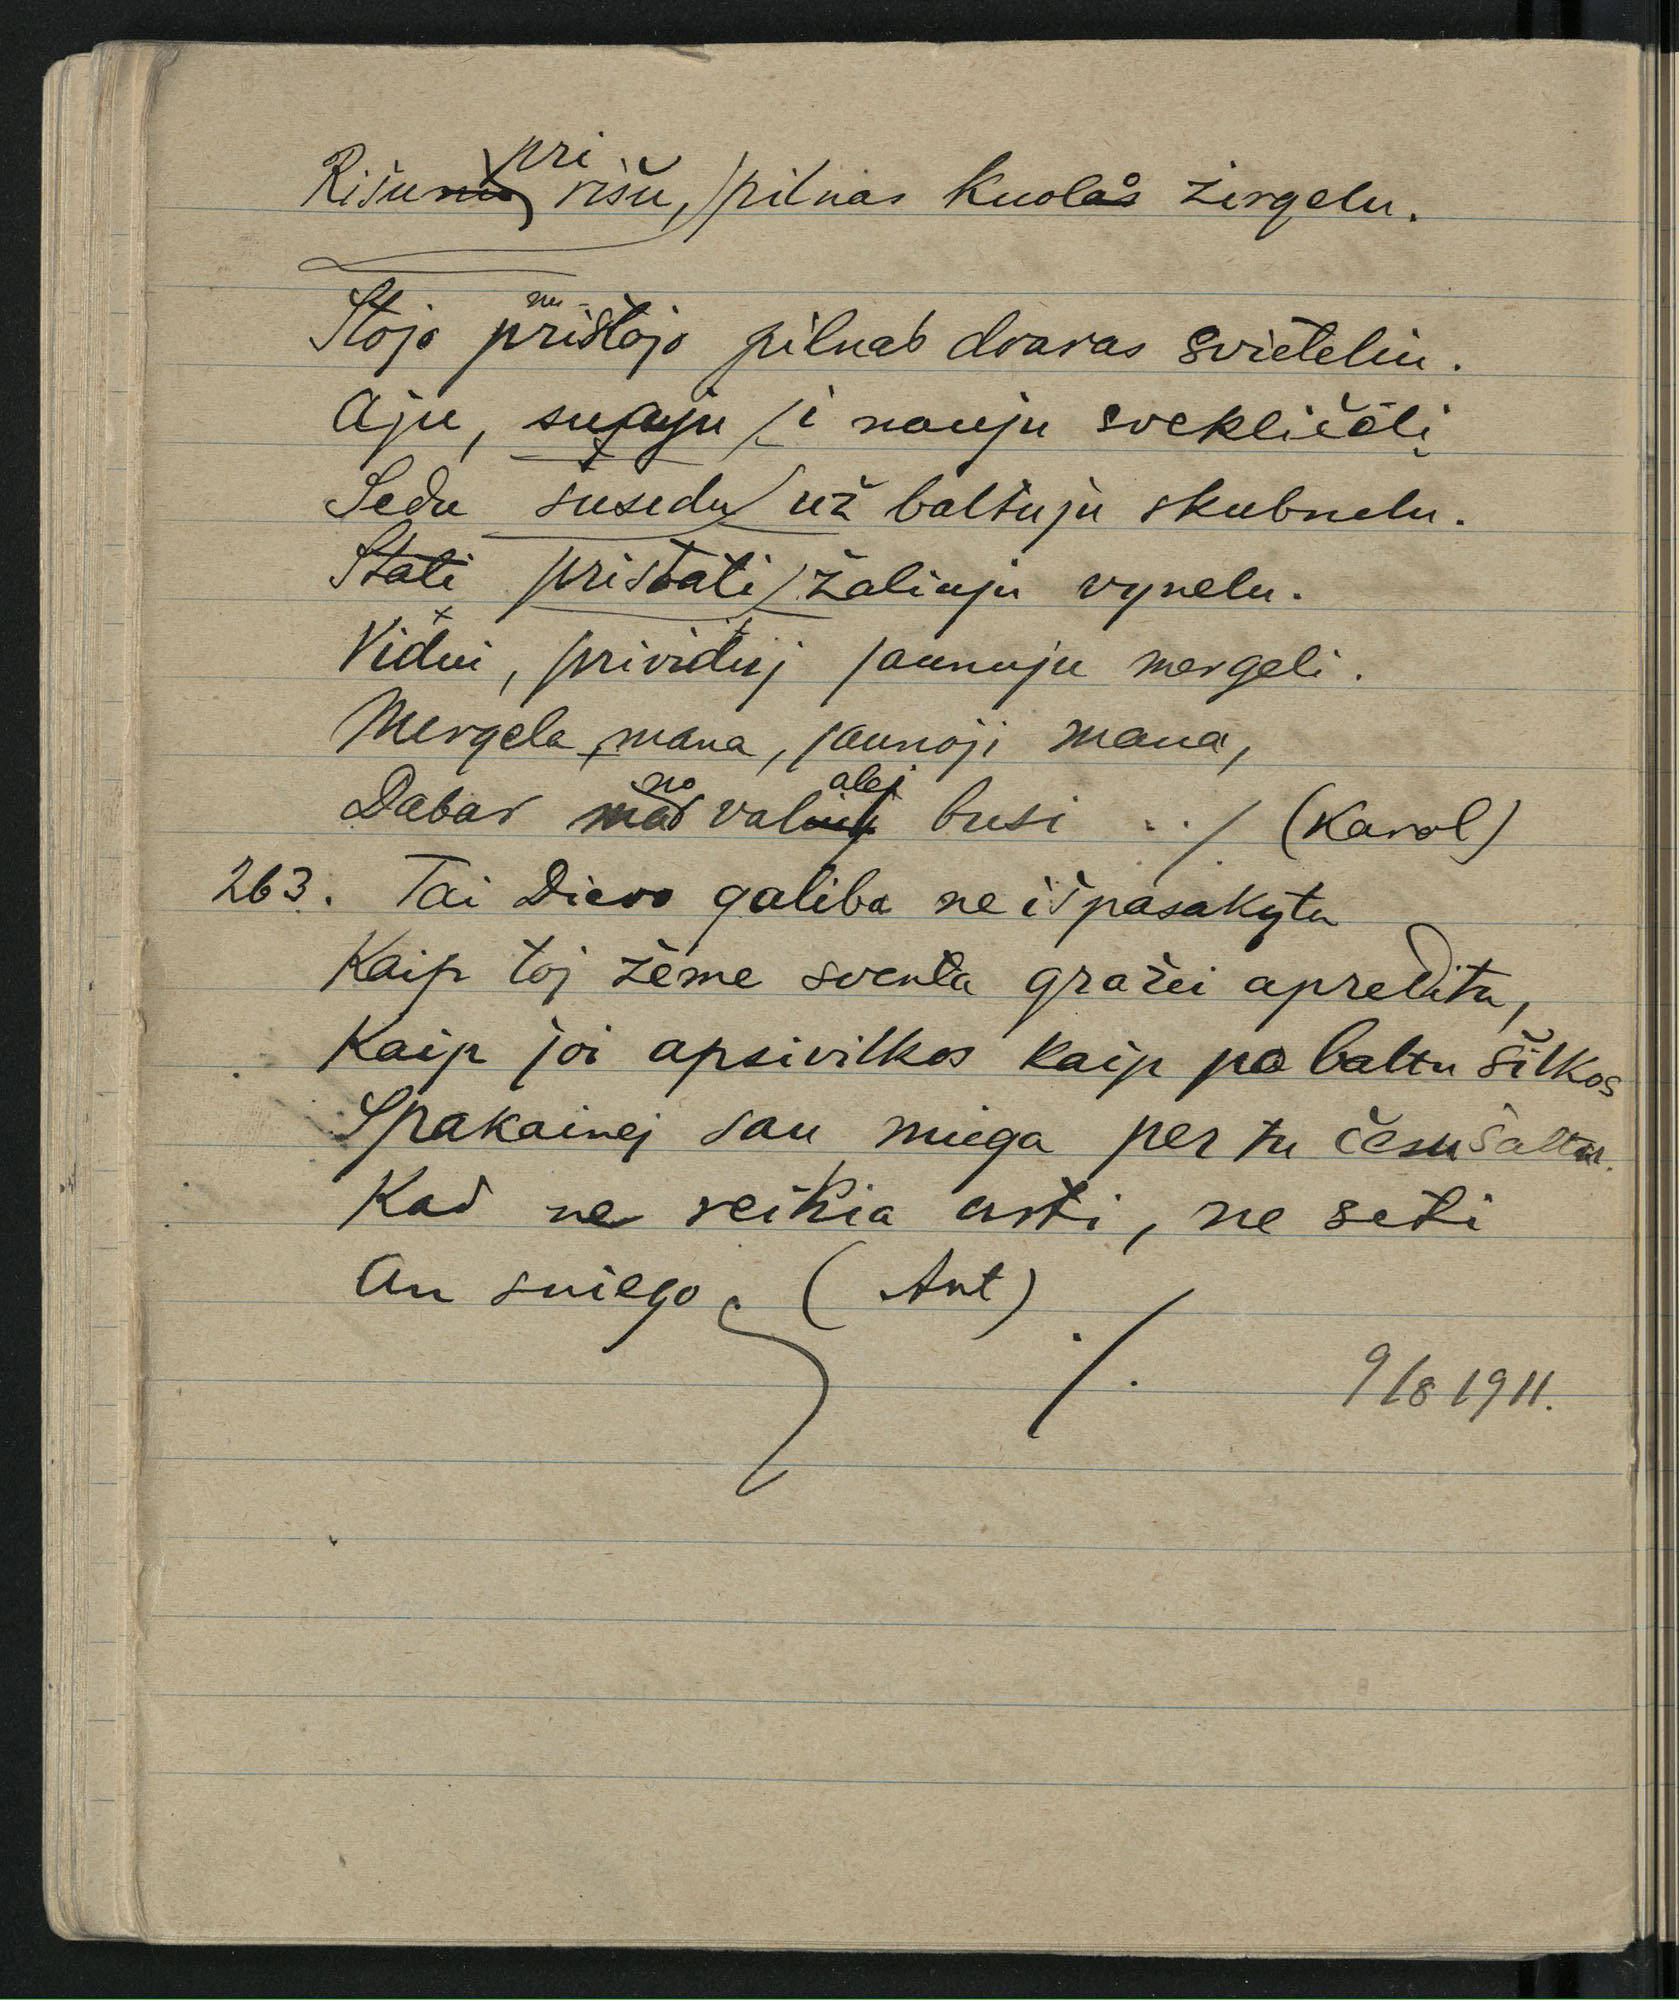 Rišu pri rišu, pilnas kuolas žirgelu.
Stojo nu pristojo pilnas dvaras svieteliu.
Aju, suaju i nauju svekličėlį
Sedu susedu už baltuju skubnelu.
Stati pristati žaliuju vynelu.
Vidui, prividuj jaunuju mergeli.
Mergela mana, jaunoji mana,
Dabar no valalej busi ./. (Karol)
263. Tai Dievo galiba ne išpasakyta
Kaip toj žeme sventa gražei apredita,
Kaip joi apsivilkos kaip po baltu šilkos
Spakainej sau miega per tu česu šaltu.
Kad ne reikia arti, ne seti
An sniego. (Ant)
./.
9/8 1911.